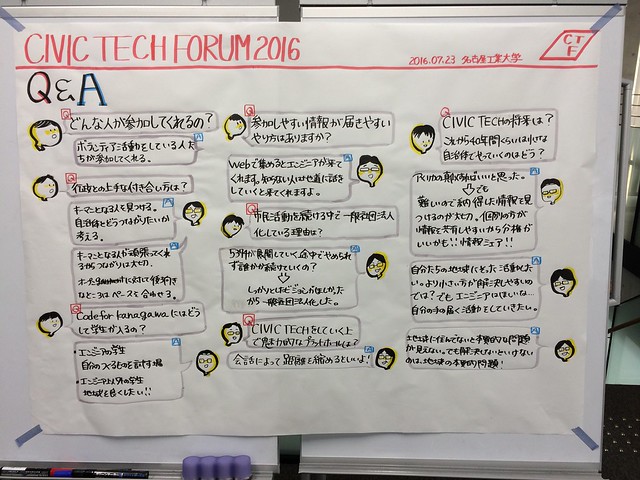 CIVIC TECH FORUM 2016
2016.07.23 名古屋工業大学
CT
F
Q&A
Q
どんな人が参加してくれるの?
A
ボランティア活動をしている人た
ちが参加してくれる。
Q
行政との上手な付き合い方は?
A
キーマンとなる人を見つける。
自治体とどうつながりたいか
考える。
A
キーマンとなる人が頑張ってくれ
るからつながりは大切。
オープンに対して後向き
なところはペースを合わせる。
Q
Code for Kanagawaにはどう
して学生が入るの?
A
・エンジニアの学生
自分のつくるものを試す場
・エンジニア以外の学生
地域を良くしたい!!
Q
参加しやすい情報が届きやすい
やり方はありますか?
A
Webで集めるとエンジニアが来て
くれます。知らない人は地道に話を
していくと来てくれますよ。
Q
市民活動を続ける中で一般社団法人
化している理由は?
A
5か所が展開していく途中でやめられ
ず誰かが続けていくの?
しっかりとしたビジョンがほしかった
から一般社団法人化した。
Q
CIVIC TECHをしていく上
で魅力的なプラットホームは?
A
会話によって距離を縮めるといいよ!
Q
CIVIC TECHの将来は?
これから40年間くらいは小さな
自治体でやっていくのはどう?
A
アメリカの事例はいいと思った。
でも
難しいので納得した情報を見
つけるのが大切。個別の方が
情報を共有しやすいから分権が
いいかも!!情報シェア!!
A
自分たちの地域にとって活動化した
い。より小さい方が解決しやすいの
では?でもエンジニアはほしいな…
自分の手の届く活動をしていきたい。
A
地域に住んでないと本質的な問題
が見えない。でも解決しないといけない
のは、地域の本質的問題!